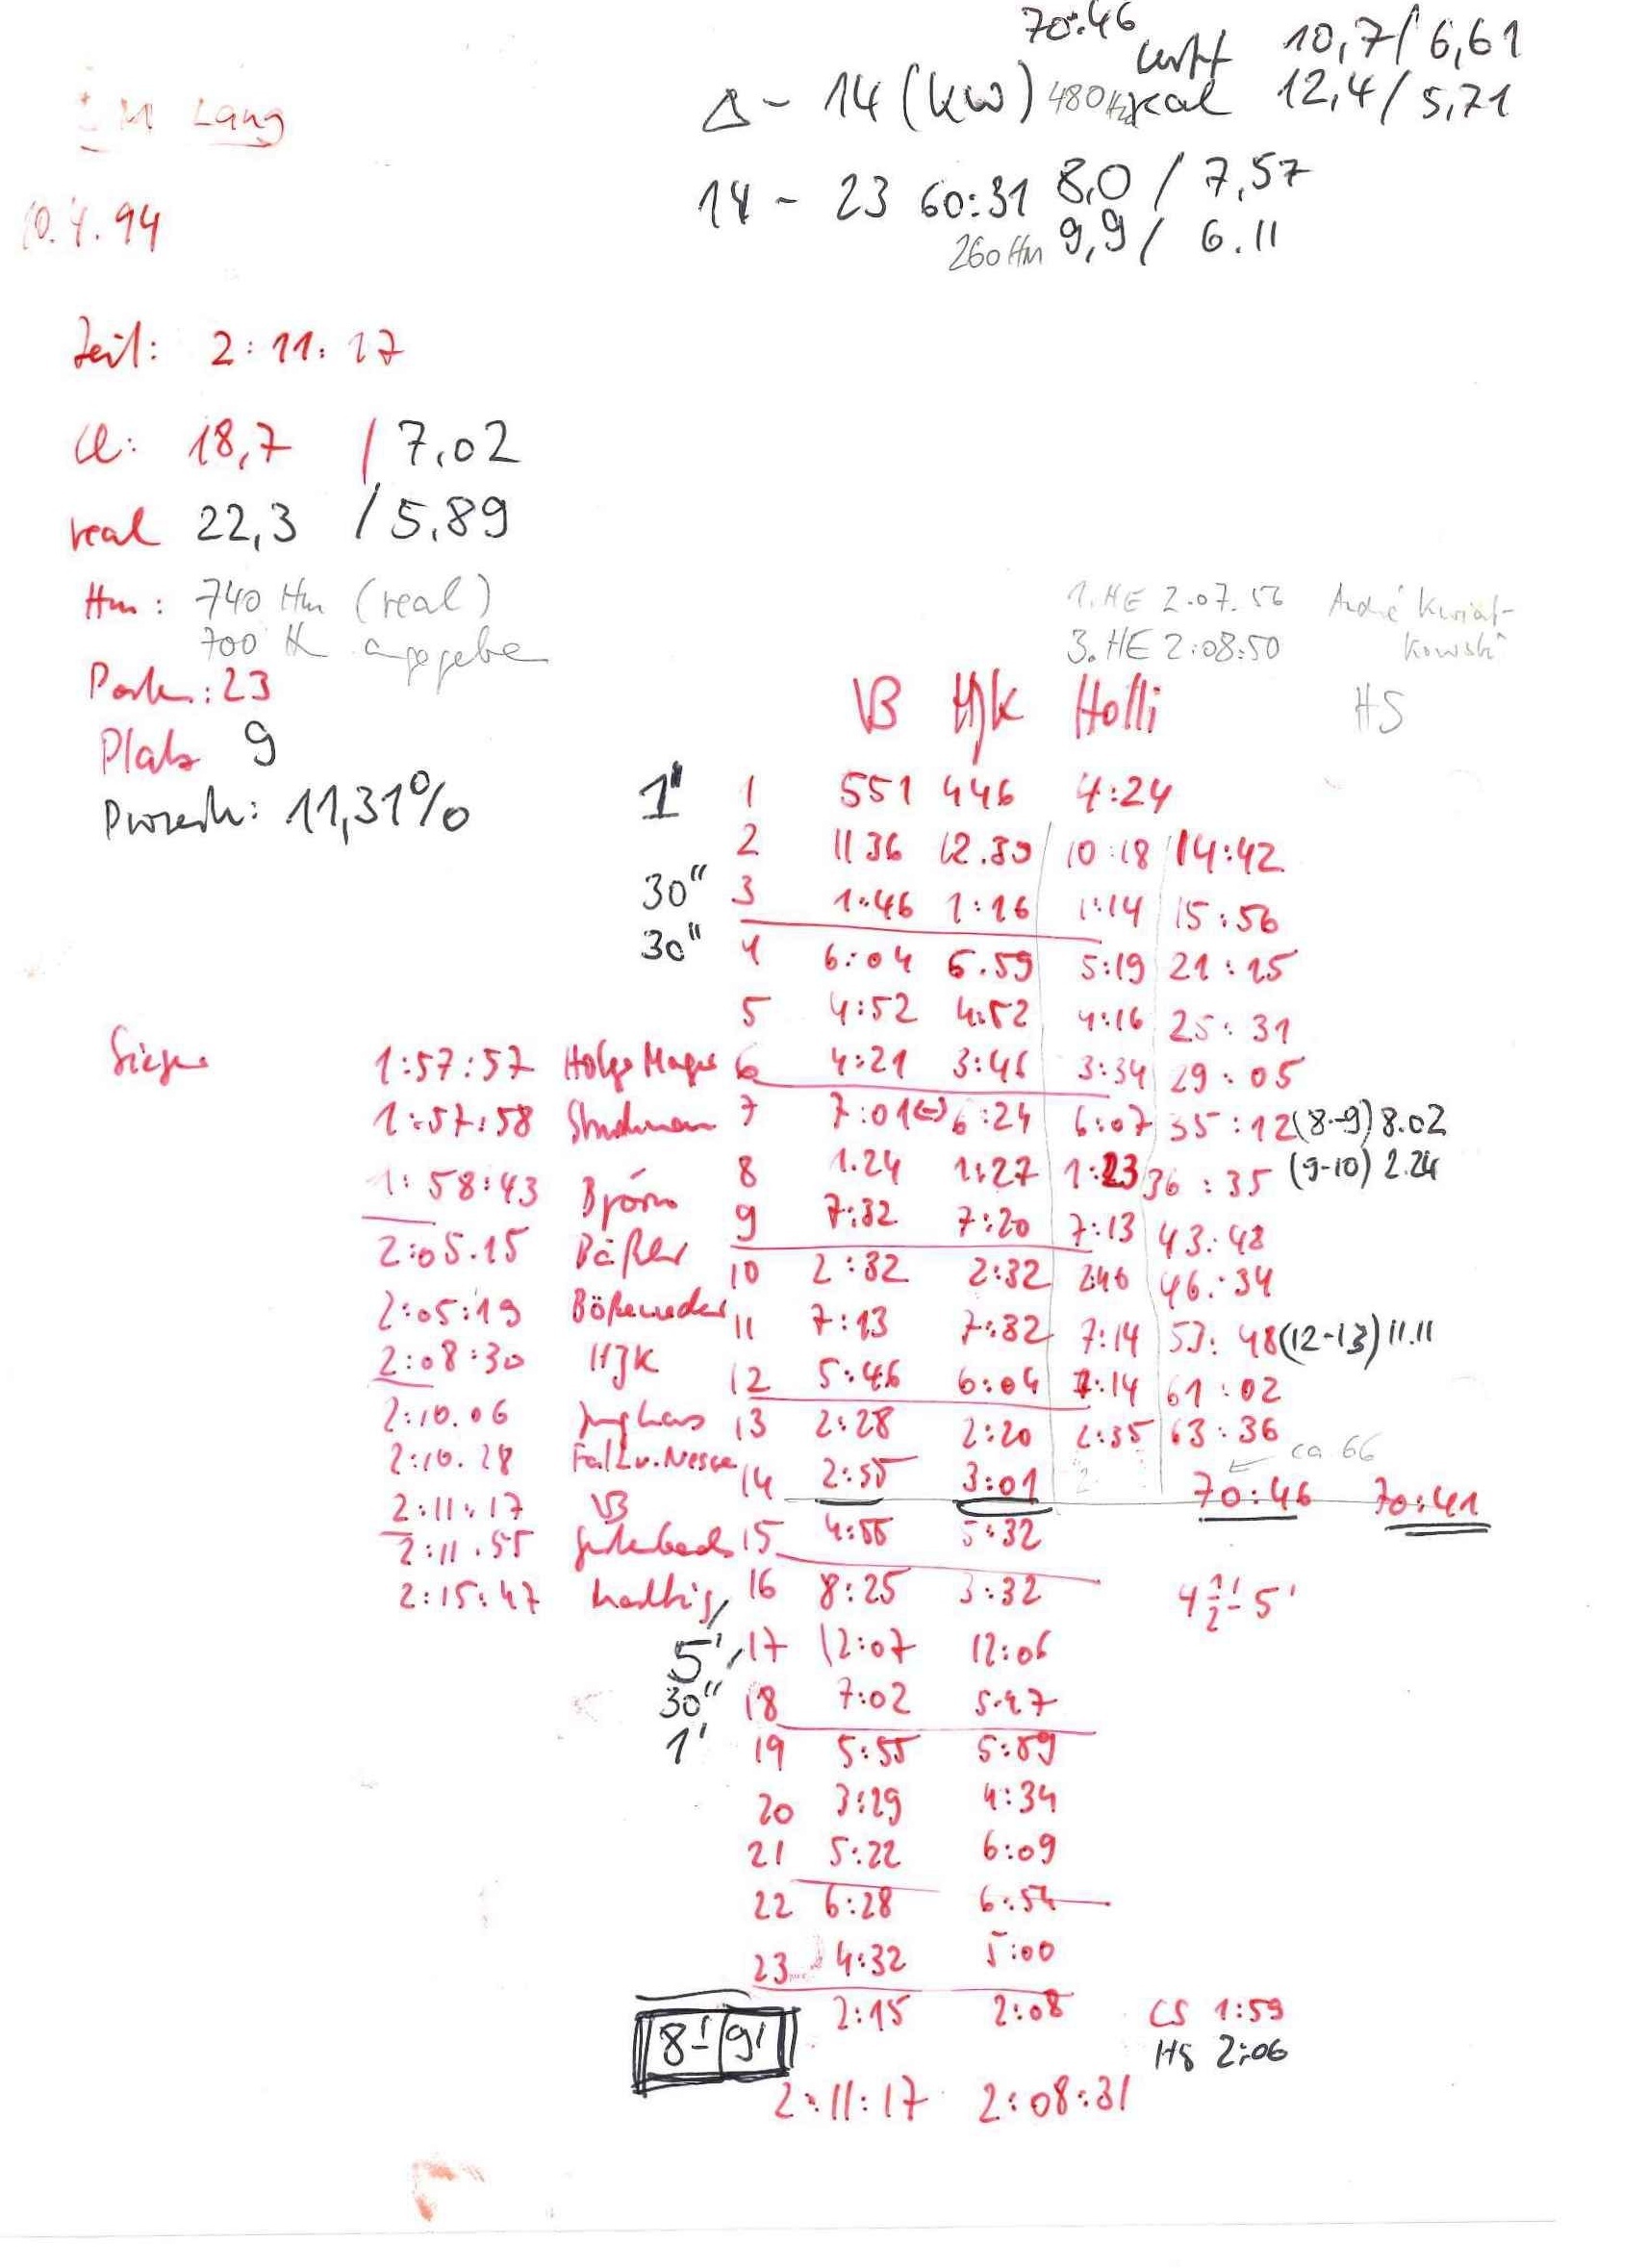 70:46
Luft 10,7/6,61
Δ - 14 (kW) 480 Hm real 12,4/5,71
14 - 23 60:31 8,0 / 7,57
260 Hm 9,9 / 6.11
M Lang
10.4.94
Zeit: 2:11:17
18,7 / 7,02
real 22,3 / 5,89
Hm: 740 Hm (real)
700 angegebe
Post.: 23
Platz 9
Prozent: 11,31%
1. HE 2.07.56 André Kwiat-
3. HE 2:08:50 kowski
VB HJK Holli HS
1 551 446 4:24
2 1136 12.39 10:18 14:42
30" 3 1:46 1:16 1:14 15:56
30" 4 6:04 6.59 5:19 21:15
5 4:52 4:52 4:16 25:31
Sieger 1:57:57 6 4:21 3:46 3:34 29:05
1:57:58 7 7:01 6:24 6:07 35:12 (8-9) 8.02
1:58:43 Björn 8 1.24 1:27 1:23 36:35 (9-10) 2.24
9 7:32 7:20 7:13 43:48
2:05.15 10 2:32 2:32 2:46 46:34
2:05:19 11 7:13 7:32 7:14 53:48 (12-13) 11.11
2:08:30 HJK 12 5:46 6:04 7:14 61:02
2:10.06 Junghans 13 2:28 2:20 2:35 63:36
ca 66
2:10.28 14 2:55 3:01 70:46 70:41
2:11:17 VB
2:11.55 15 4:55 5:32
2:15:47 16 8:25 3:32 4 1/2' - 5'
5' 17 12:07 12:06
30" 18 7:02 5:27
1' 19 5:55 5:59
20 3:29 4:34
21 5:22 6:09
22 6:28 6:54
23 4:32 5:00
2:15 2:08 CS 1:59
8'-9' HS 2:06
2:11:17 2:08:31